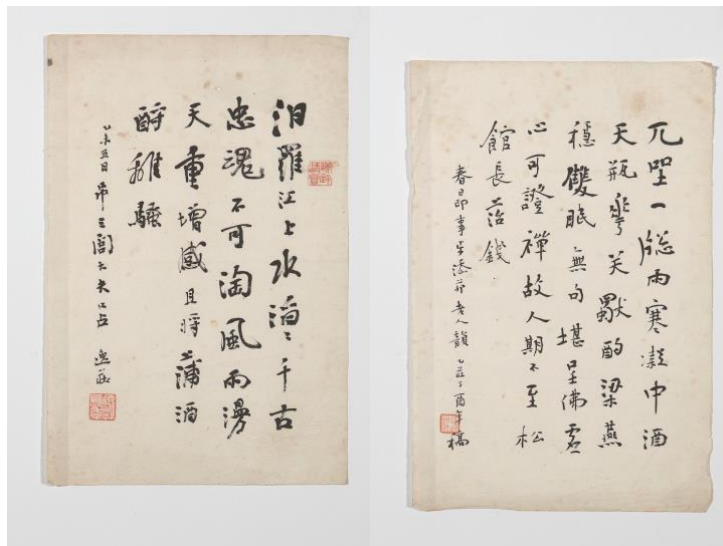 汨羅江上水滔〻千古
忠魂不可淘風雨漫
天重增感且將蒲酒
酹離騷
乙未五日 三閭大夫口占
兀坐一牕雨寒凝中酒
天瓶花笑獨酌梁燕
穩雙眠無句堪呈佛虛
心可證禪故人期不至松
館長苔錢
春日即事步 老人韻 丁酉年稿